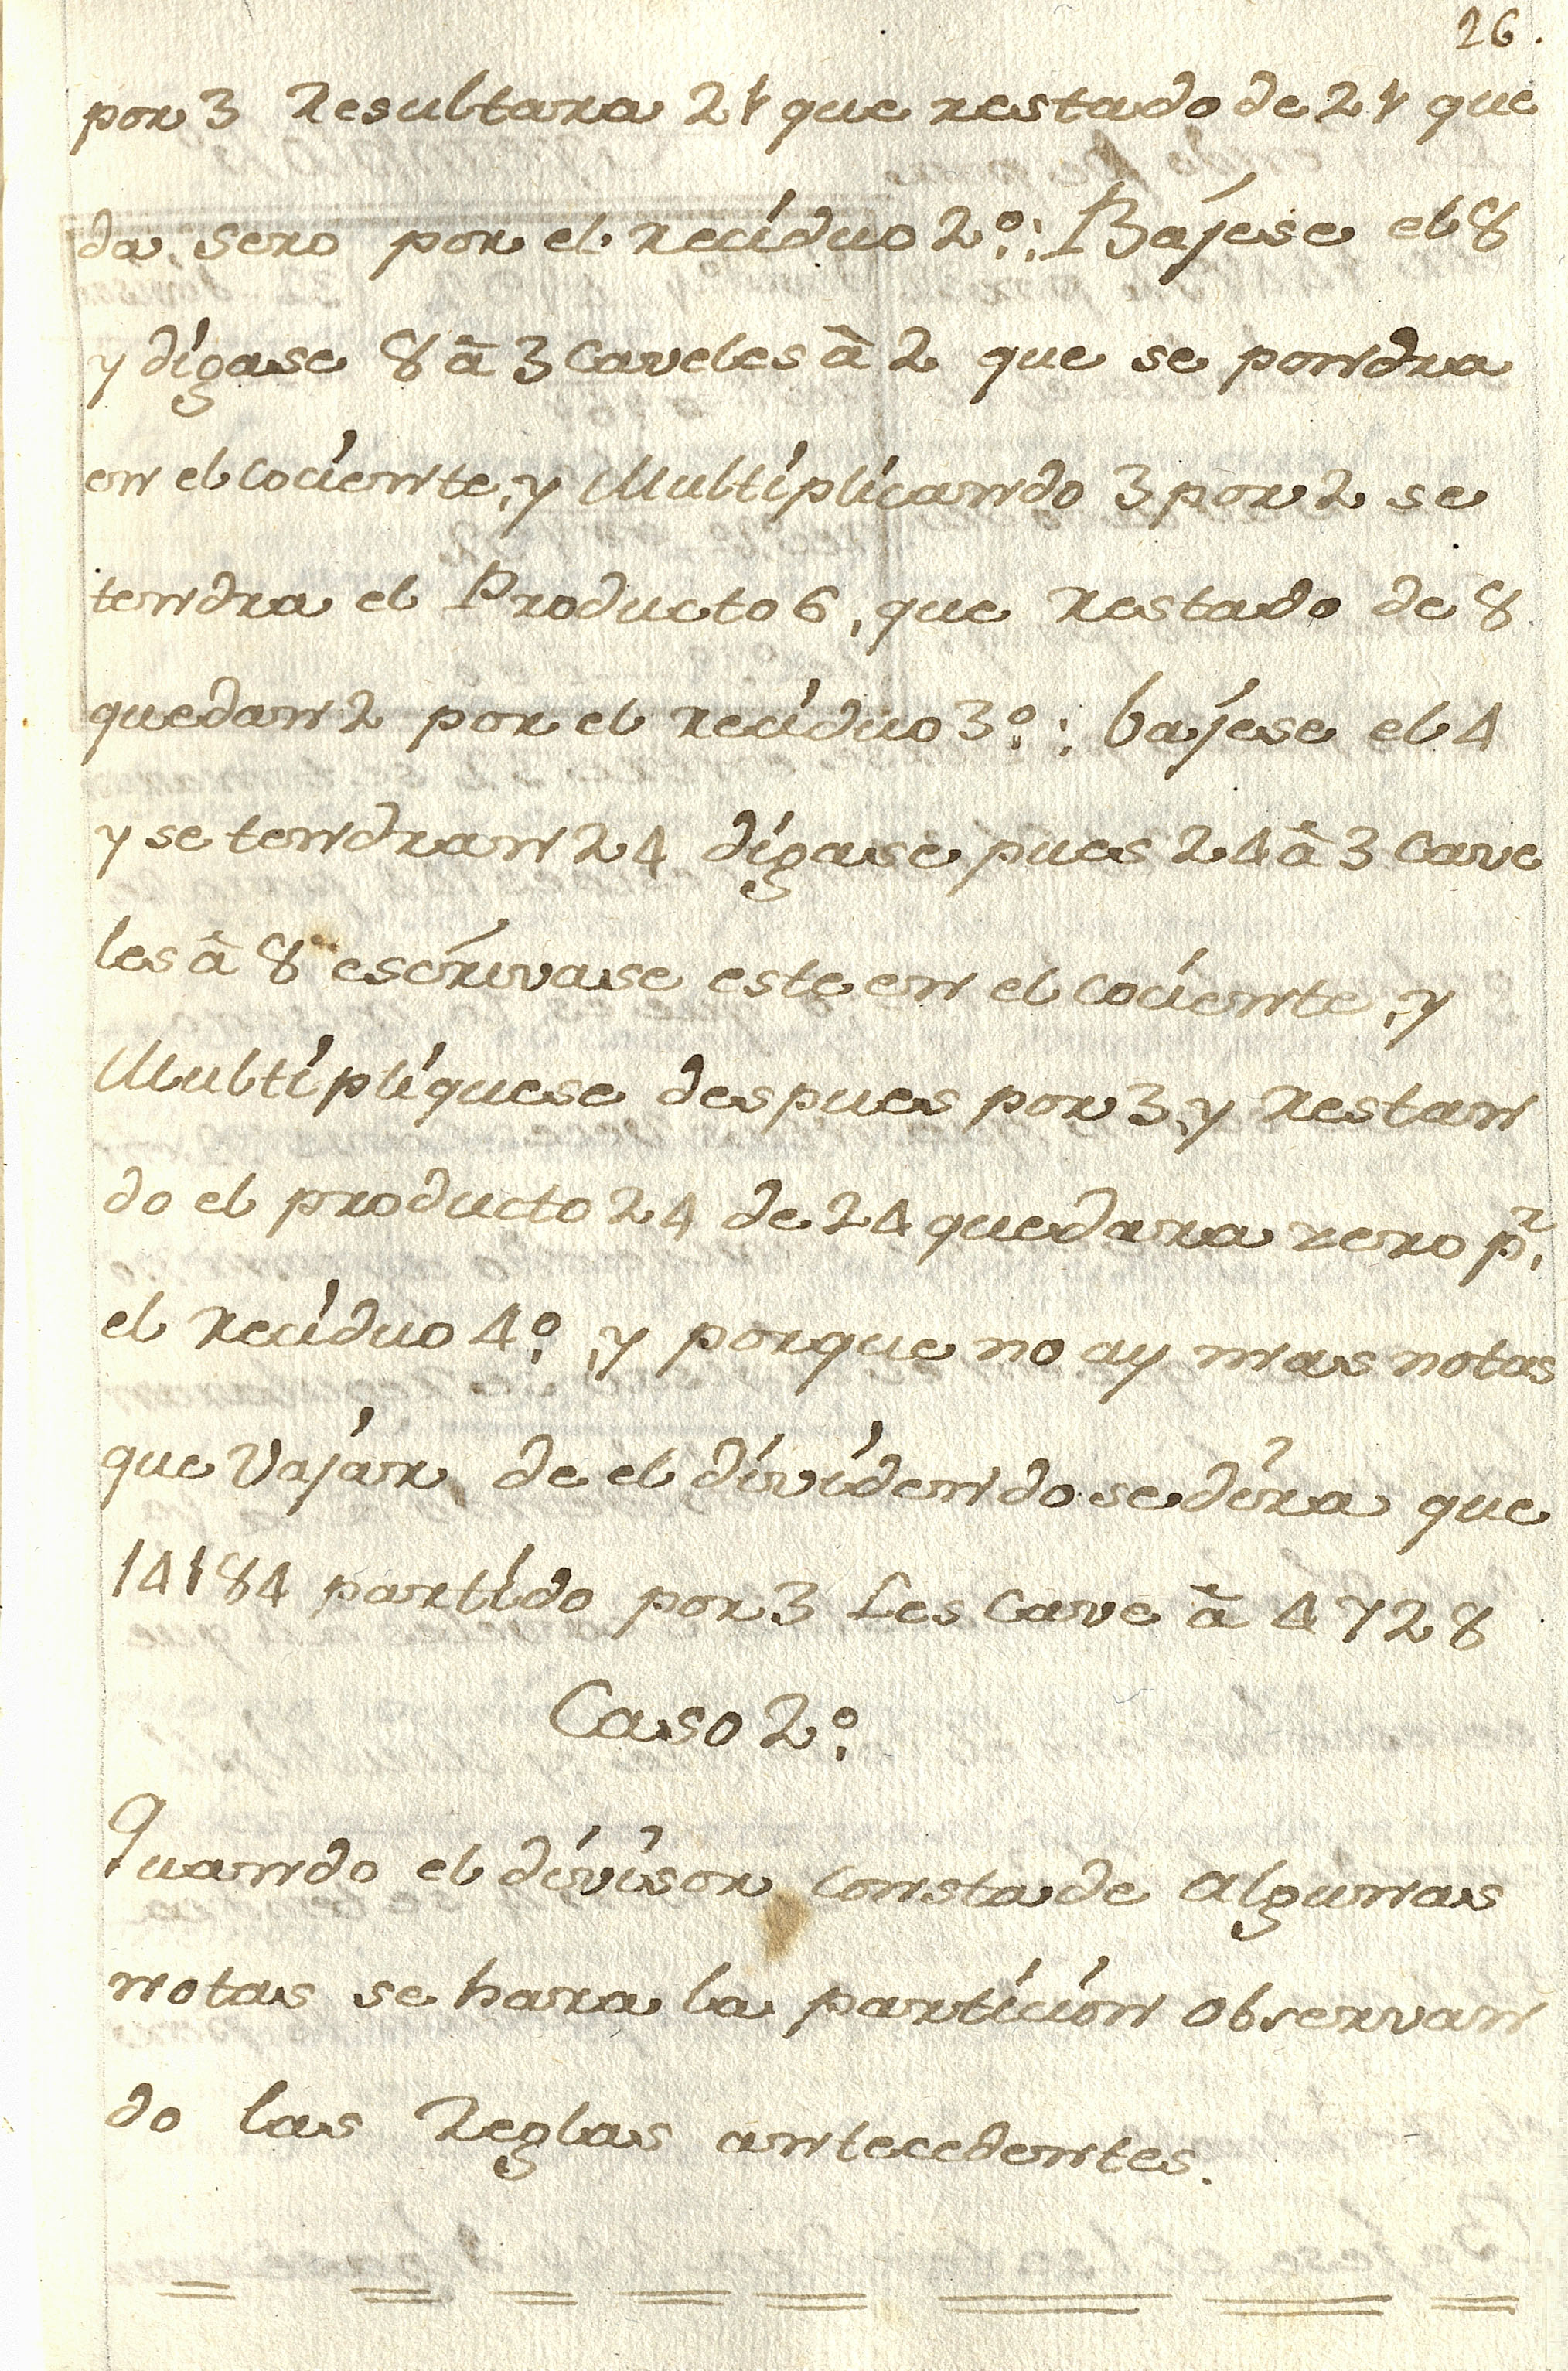 26.
por 3 Resultara 21 que restado de 21 que
da, sero por el recíduo 2º: Bájese el 8
y dígase 8 à 3 caveles à 2 que se pondra
en el cociente, y Multiplicando 3 por 2 se
tendra el Producto 6, que restado de 8
quedan 2 por el recíduo 3º: bájese el 4
y se tendran 24 dígase pues 24 à 3 Cave
les à 8 escrívase este en el cociente, y
Multiplíquese despues por 3, y restan
do el producto 24 de 24 quedara zero pr.
el recíduo 4º, y porque no ay mas notas
que Vajar de el dívídendo se díra que
14184 partído por 3 Les Cave à 4728
Caso 2º
Quando el dívísor consta de algunas
notas se hara la partícíon observan
do las Reglas antecedentes.